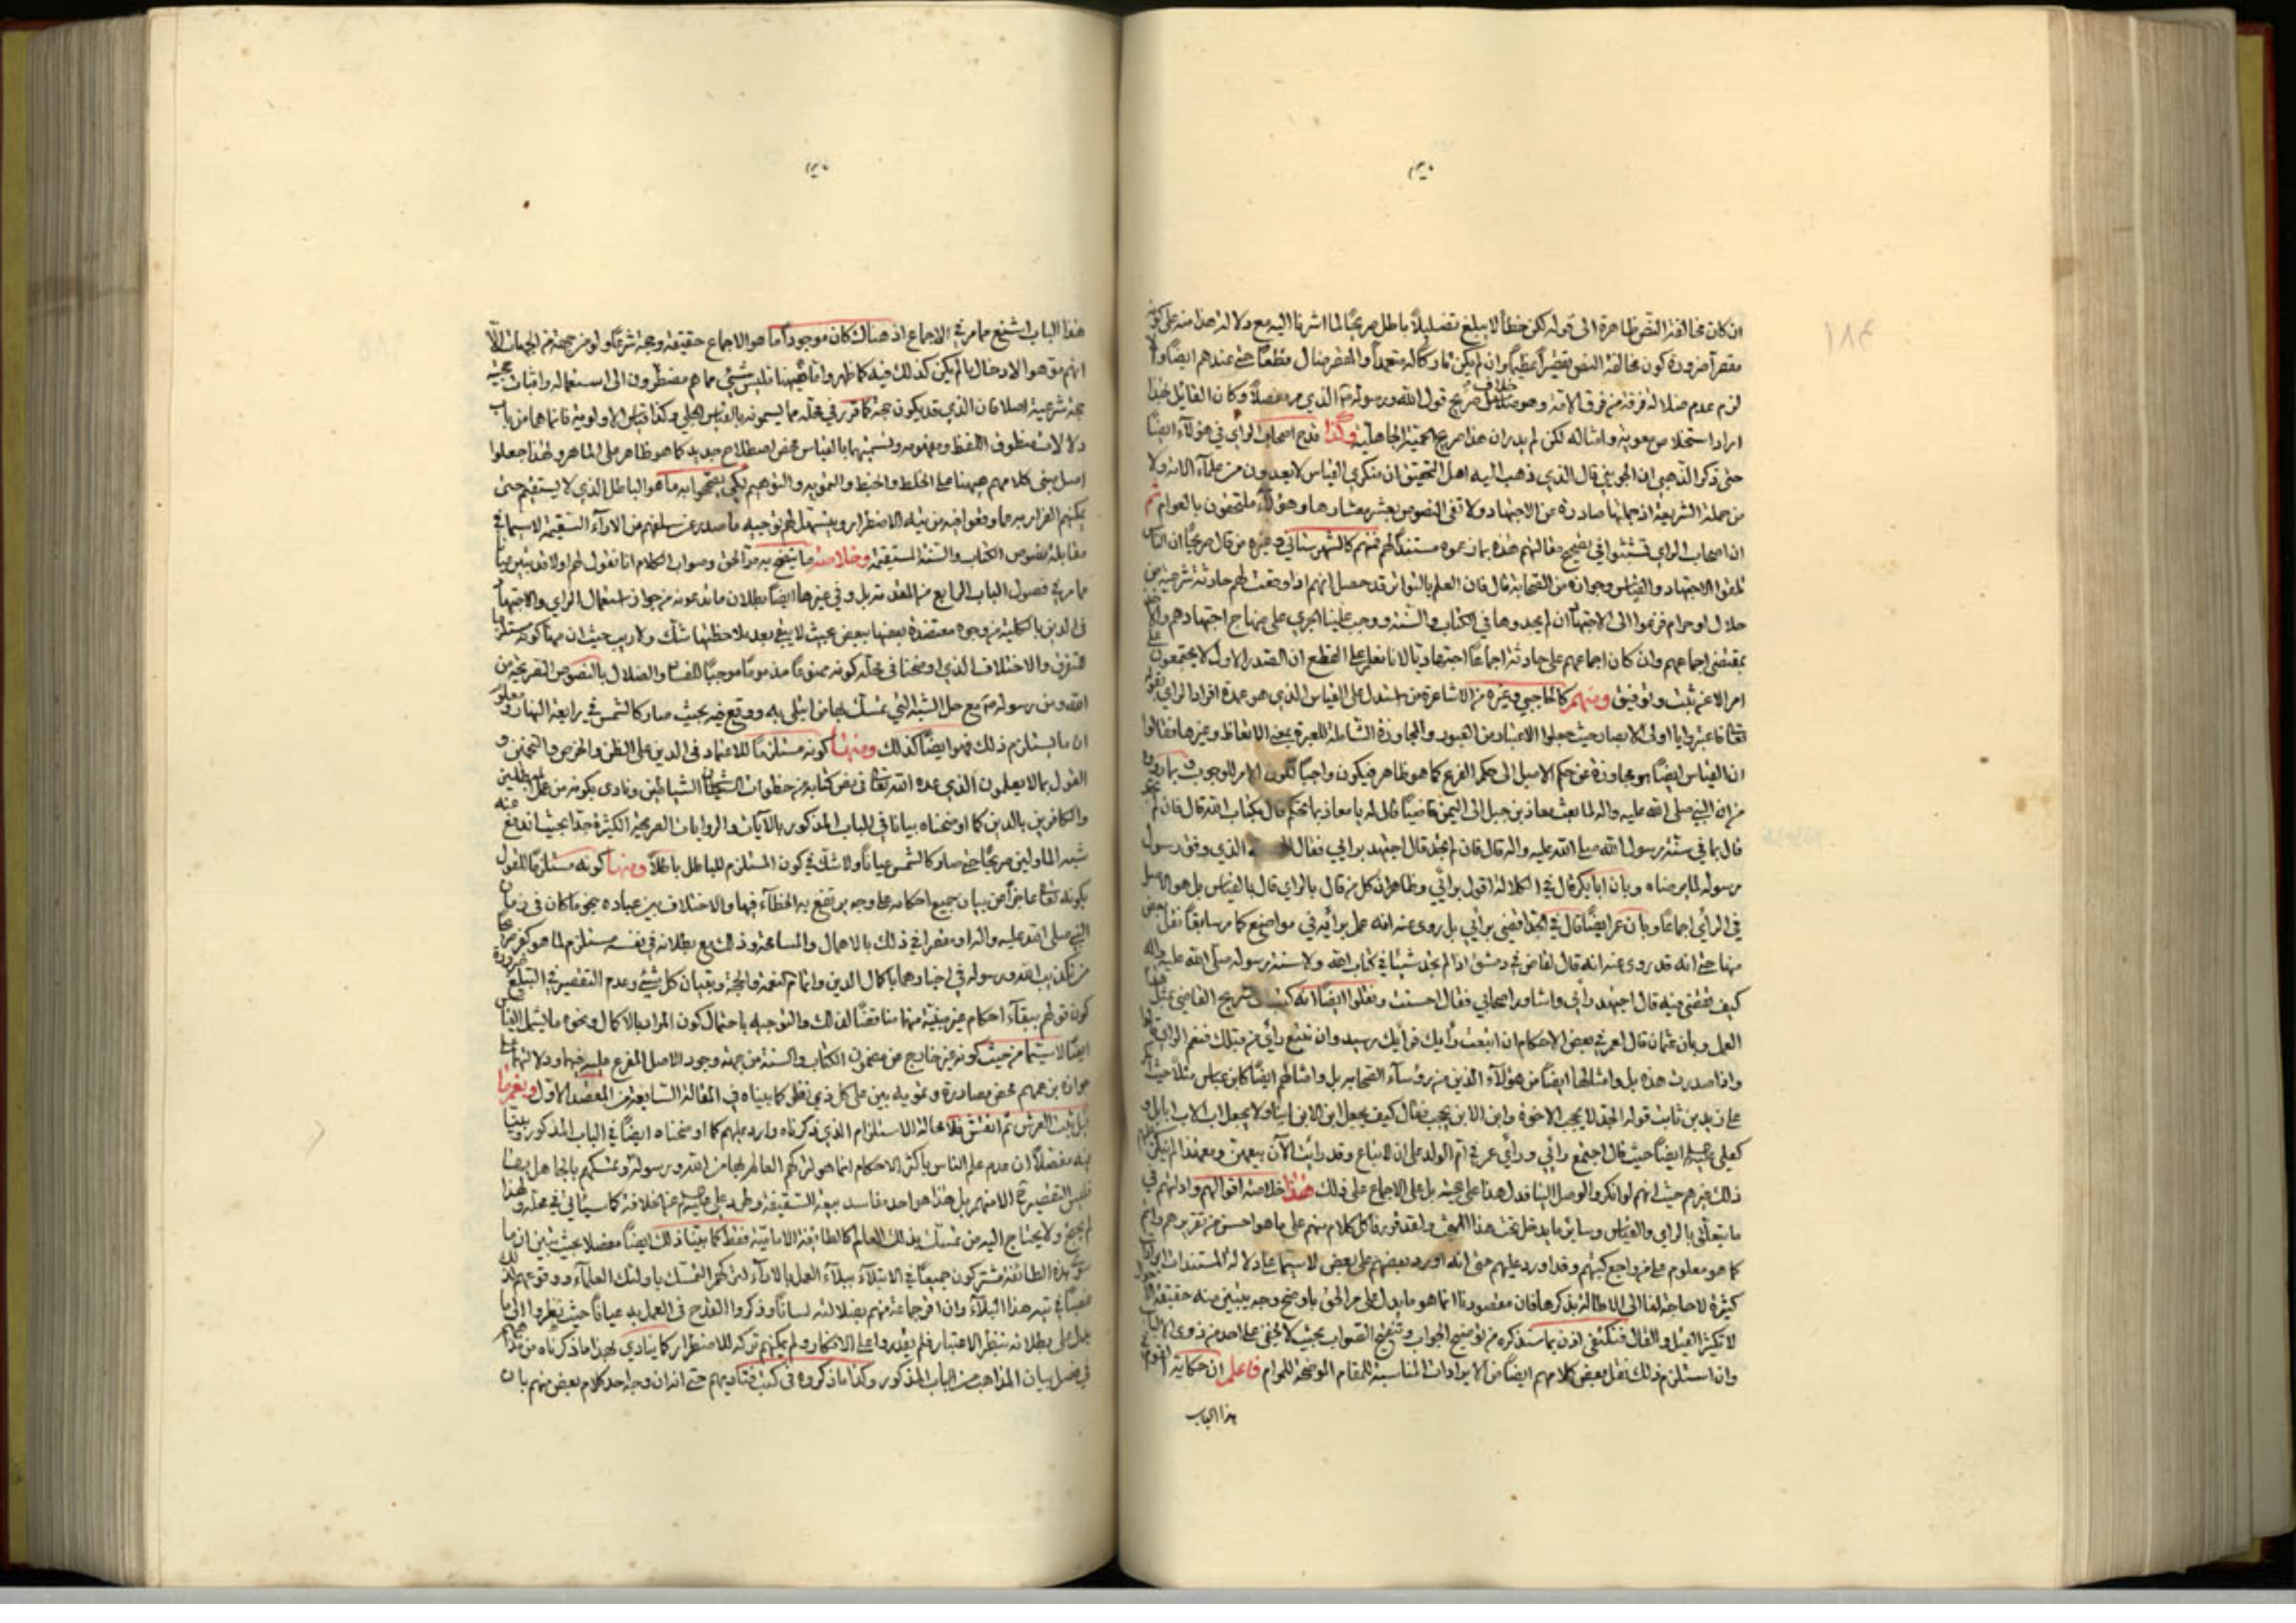 ان كان مخالفة النص ظاهرة الى قوله لكن خطأ لا يبلغ تضليلاً باطل صريحاً لما اشرنا اليه مع دلالة هذا منه على كونه
مقصراً ضرورة كون مخالفة النص تقصيراً عظيماً وان لم يكن تاركاً له متعمداً والمقصر ضال قطعاً حتى عندهم ايضاً والا
لزم عدم ضلالة فرقة من فرق الامة وهو خلاف صريح قول الله ورسوله الذي مر مفصلاً وكان القائل بهذا
اراد استخلاص معوية وامثاله لكن لم يدر ان هذا صريح الحمية الجاهلية وكذا قدح اصحاب الراي في هؤلاء ايضاً
حتى ذكر الذهبي ان الجويني قال الذي ذهب اليه اهل التحقيق ان منكري القياس لا يعدون من علماء الامة ولا
من حملة الشريعة اذ جلها صادرة عن الاجتهاد ولا تفى النصوص بعشر معشارها وهؤلاء ملتحقون بالعوام ثم
ان اصحاب الراي تشبثوا في تصحيح مقالتهم هذه بما زعموه مستنداً لهم فمنهم كالشهرستاني وغيره من قال صريحاً ان الناس
تلقوا الاجتهاد والقياس وجوازه من الصحابة قال فان العلم بالتواتر قد حصل انهم اذا وقعت لهم حادثة شرعية من
حلال او حرام فزعوا الى الاجتهاد ان لم يجدوها في الكتاب والسنة ووجب علينا الجري على منهاج اجتهادهم والاخذ
بمقتضى اجماعهم وان كان اجماعهم على حادثة اجماعاً اجتهادياً لانا نعلم على القطع ان الصدر الاول لا يجتمعون على
امر الا عن تثبت وتوفيق ومنهم كالحاجبي وغيره من الاشاعرة من استدل على القياس الذي هو عمدة افراد الراي بقوله
تعالى فاعتبروا يا اولى الابصار حيث جعلوا الاعتبار من العبور والمجاوزة الشاملة للعبرة بمعنى الاتعاظ وغيرها فقالوا
ان القياس ايضاً هو مجاوزة عن حكم الاصل الى حكم الفرع كما هو ظاهر فيكون واجباً لكون الامر للوجوب وبما رووه
من ان النبي صلى الله عليه واله لما بعث معاذ بن جبل الى اليمن قاضياً قال له يا معاذ بما تحكم قال بكتاب الله قال فان لم تجد
قال بما في سنة رسول الله صلى الله عليه واله قال فان لم تجد قال اجتهد برايي فقال الذي وفق رسول
رسوله لما يرضاه وبان ابا بكر قال في الكلالة اقول برائي وظاهر ان كل من قال بالراي قال بالقياس بل هو الاصل
في الرأي اجماعاً وبان عمر ايضاً قال في الجد اقضى برأيي بل روى عنه انه عمل برأيه في مواضع كما مر سابقاً نقل بعض
منها حتى انه قد روى عنه انه قال لقاض في دمشق اذا لم يجد شيئاً في كتاب الله ولا سنة رسوله صلى الله عليه واله
كيف تقضى فيه قال اجتهد رأيي واشاور اصحابي فقال احسنت ونقلوا ايضاً انه كتب الى شريح القاضي بمثل هذا
العمل وبان عثمان قال لعمر في بعض الاحكام ان اتبعت رأيك فرأيك رشيد وان تتبع رأي من قبلك فنعم الراي قالوا
واذا صدرت هذه بل وامثالها ايضاً من هؤلاء الذين من رؤساء الصحابة بل وامثالهم ايضاً كابن عباس مثلاً حيث انكر
على زيد بن ثابت قوله الجد لا يحجب الاخوة وابن الابن يحجب فقال كيف يجعل ابن الابن ابناً ولا يجعل اب الاب اباً بل و
كعلى ايضاً حيث قال اجتمع رأيي ورأي عمر في ام الولد على ان لا تباع وقد رأيت الآن بيعهن ومع هذا لم ينكر
ذلك غيرهم حيث انهم لو انكروا لوصل الينا فدل هذا على حجيته بل على الاجماع على ذلك هذا خلاصة اقوالهم وادلتهم في
ما يتعلق بالراي والقياس وساير ما يدخل تحت هذا المبحث ولقد قررنا كل كلام منهم على ما هو احسن من تقريرهم وانه
كما هو معلوم على من راجع كتبهم وقد اورد عليهم حتى انه اورد بعضهم على بعض لا سيما على دلالة المستندات ايرادات
كثيرة لا حاجة لنا الى الاطالة بذكرها فان مقصودنا انما هو ما يدل على مر الحق باوضح وجه يتبين منه حقيقة الحال
لا تكثير القيل والقال فنكتفى اذن بما سنذكره من توضيح الجواب وتنقيح الصواب بحيث لا يخفى على احد من ذوى الالباب
وان استلزم ذلك نقل بعض كلامهم ايضاً من الايرادات المناسبة للمقام الموضحة للمرام فاعلم ان حكاية القوم
هذا الباب
هذا الباب اشنع مما مر في الاجماع اذ هناك كان موجوداً ما هو الاجماع حقيقة وحجة شرعاً ولو من جهة من الجهات الا
انهم توهموا الادخال ما لم يكن كذلك فيه كما ظهر واما هيهنا فليس شئ مما هم مضطرون الى استعماله واثبات حجيته
حجة شرعية اصلا فان الذي قد يكون حجة كما قرر في محله مما يسمونه بالقياس الجلي وكذا قياس الاولوية فانما هما من باب
دلالات منطوق اللفظ ومفهومه وتسميتهما بالقياس محض اصطلاح جديد كما هو ظاهر على الماهر ولهذا جعلوا
اصل مبنى كلامهم هيهنا على الخلط والخبط والتمويه والتوهيم لكى يصححوا به ما هو الباطل الذي لا يستقيم حتى
يمكنهم الفرار به مما وقعوا فيه من تيه الاضطرار ويستهل لهم توجيه ما صدر عن سلفهم من الاراء السقيمة لا سيما في
مقابلة نصوص الكتاب والسنة المستقيمة وخلاصة ما يتضح به مر الحق وصواب الكلام انا نقول لهم اولا قد تبين عياناً
مما مر في فصول الباب الرابع من المقدمة بل وفى غيرها ايضاً بطلان ما يدعونه من جواز استعمال الراي والاجتهاد
فى الدين بالكلية من وجوه معتضدة بعضها ببعض بحيث لا يبقى بعد ملاحظتها شك ولا ريب حيث ان منها كونه مستلزماً
للتفرق والاختلاف الذي اوضحنا في محله كونه ممنوعاً مذموماً موجباً للفساد والضلال بالنصوص الصريحة من
الله ومن رسوله مع حل الشبه التي تمسك بها من ابتلى به ووقع فيه بحيث صار كالشمس في رابعة النهار ومعلوم
ان ما يستلزم ذلك فهو ايضاً كذلك ومنها كونه مستلزماً للاعتماد فى الدين على الظن والخرص والتخمين و
القول بما لا يعلمون الذي عده الله تعالى فى نص كتابه من خطوات الشياطين ونادى بكونه من عمل المبطلين
والكافرين بالدين كما اوضحناه بياناً في الباب المذكور بالآيات والروايات الصريحة الكثيرة جداً بحيث اندفع عنه
شبه المأولين صريحاً حتى صار كالشمس عياناً ولا شك في كون المستلزم للباطل باطلاً ومنها كونه مستلزماً للقول
بكونه تعالى عاجزاً عن بيان جميع احكامه على وجه يرتفع به الخطاء فيها والاختلاف بين عباده حتى ما كان فى زمان
النبي صلى الله عليه واله او مقصراً في ذلك بالاهمال والمسامحة وذلك مع بطلانه فى نفسه مستلزم لما هو كفر صريحاً
من تكذيب الله ورسوله في اخبارهما باكمال الدين واتمام النعمة والحجة وتبيان كل شئ وعدم التقصير في التبليغ ضرورة
كون قولهم ببقاء احكام غير مبينة منها مناقضاً لذلك والتوجيه باحتمال كون المراد بالاكمال ونحوه ما يشمل القياس
ايضاً لا سيما من حيث كونه غير خارج عن مضمون الكتاب والسنة من جهة وجود الاصل المفرع عليه فيهما ودلالتهما على
جوازه بزعمهم محض مصادرة وتمويه بين على كل ذي نظر كما بيناه في المقالة السابعة من المقصد الاول وبغيرها
بل ثبت العرش ثم انقش فلا محالة الاستلزام الذي ذكرناه وارد عليهم كما اوضحناه ايضاً في الباب المذكور وبينا
فيه مفصلاً ان عدم علم الناس باكثر الاحكام انما هو لتركهم العالم بها من الله ورسوله وتمسكهم بالجاهل بها
فليس التقصير الا منهم بل هذا هو احد مفاسد بيعة السقيفة وطرد على عنها خلافة كما سيأتي في محله ولهذا
لم يحتج ولا يحتاج اليه من تمسك بذلك العالم كالطائفة الامامية فقط كما بينا ذلك ايضاً مفصلا بحيث تبين ان ما
سوى هذه الطائفة مشتركون جميعاً في الابتلاء ببلاء العمل بالاراء لتركهم التمسك باولئك العلماء ووقوعهم لذلك
جميعاً في تيه هذا البلاء وان اقر جماعة منهم بضلالته لساناً وذكروا القدح فى العمل به عياناً حيث نظروا الى ما
يدل على بطلانه بنظر الاعتبار فلم يقدروا على الانكار ولم يمكنهم تركه للاضطرار كما ينادي بهذا ما ذكرناه من كلامهم
في فصل بيان المذاهب من الباب المذكور وكذا ما ذكروه فى كتب فتاويهم حتى انه ان وجه احد كلام بعض منهم بان